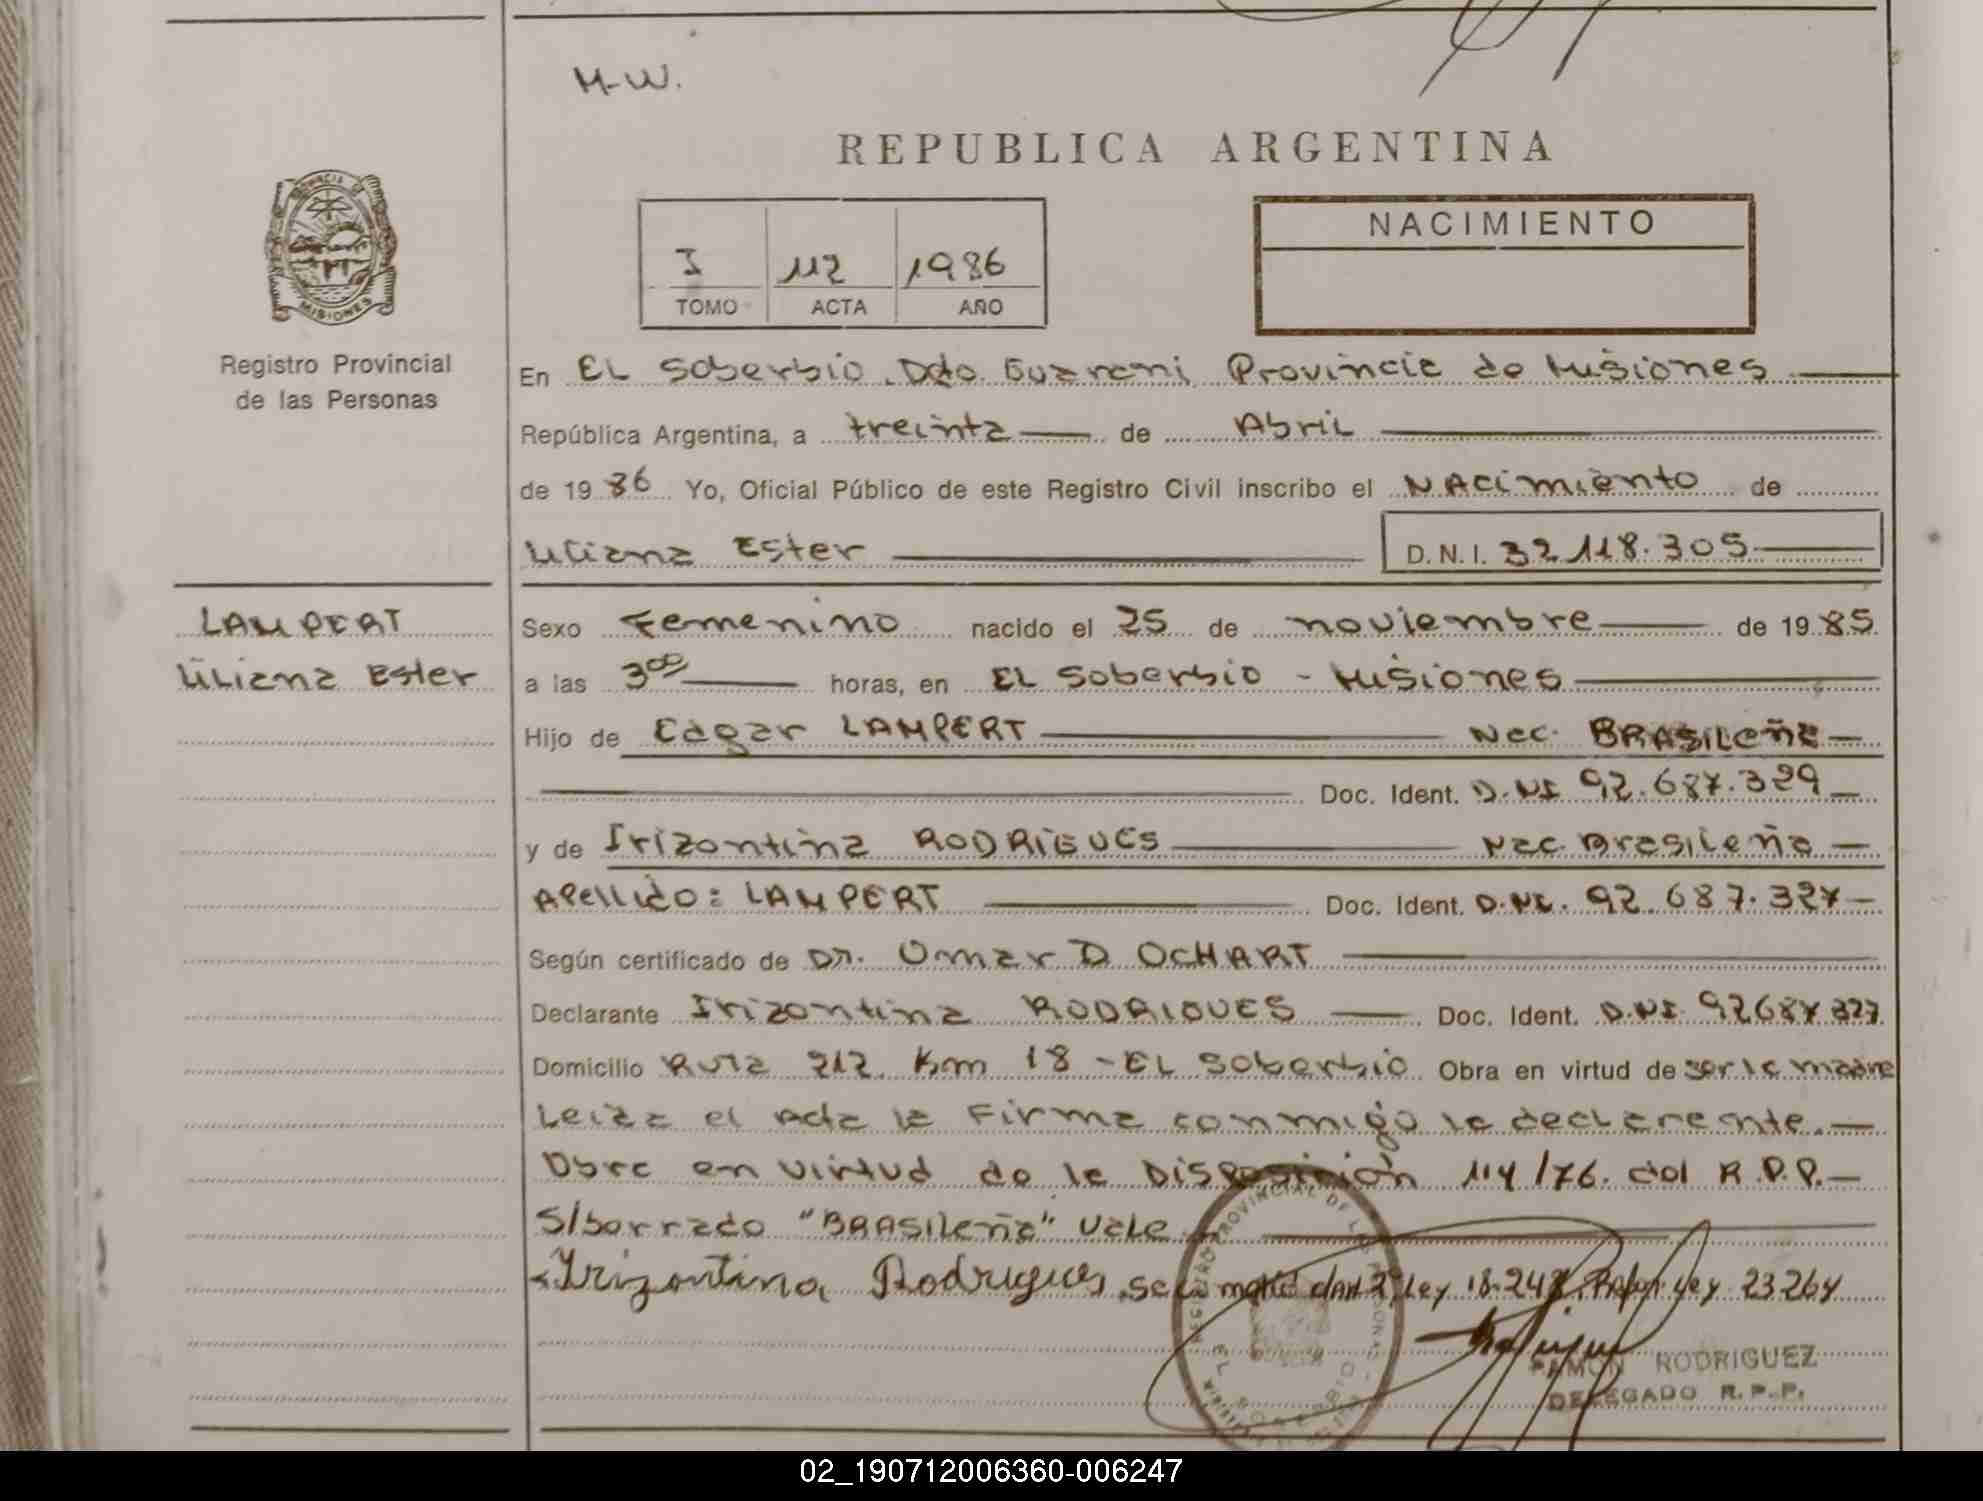 M-W.
REPUBLICA ARGENTINA
PROVINCIA DE
MISIONES
Registro Provincial
de las Personas
I 112 1986
TOMO ACTA AÑO
NACIMIENTO
En EL Soberbio. Ddo. Guarani Provincia de Misiones
República Argentina, a treinta de Abril
de 1986 Yo, Oficial Público de este Registro Civil inscribo el NAcimiento de
Liliana Ester D.N.I. 32 118.305
LAMPERT
Liliana Ester
Sexo Femenino nacido el 25 de noviembre de 1985
a las 3 00 horas, en EL Soberbio - Misiones
Hijo de Edgar LAMPERT Nac. BRASILeña
Doc. Ident. D.NI 92.687.329
y de Irizontina RODRIGUES Nac. Brasileña
Apellido: LAMPERT Doc. Ident. D.NI. 92.687.327
Según certificado de Dr. Omar D OCHART
Declarante Irizontina RODRIGUES Doc. Ident. D.NI. 92687327
Domicilio Ruta 212 Km 18 - EL Soberbio Obra en virtud de ser la madre
Leida el Acta la Firma conmigo la declarante.
Obra en virtud de la Disposición 114/76. del R.P.P.
S/borrado "BRASILeña" Vale
Irizontina Rodrigues Ley 18.248 Ley 23264
REGISTRO PROVINCIAL DE LAS PERSONAS
EL SOBERBIO
RAMON RODRIGUEZ
DELEGADO R.P.P.
02_190712006360-006247